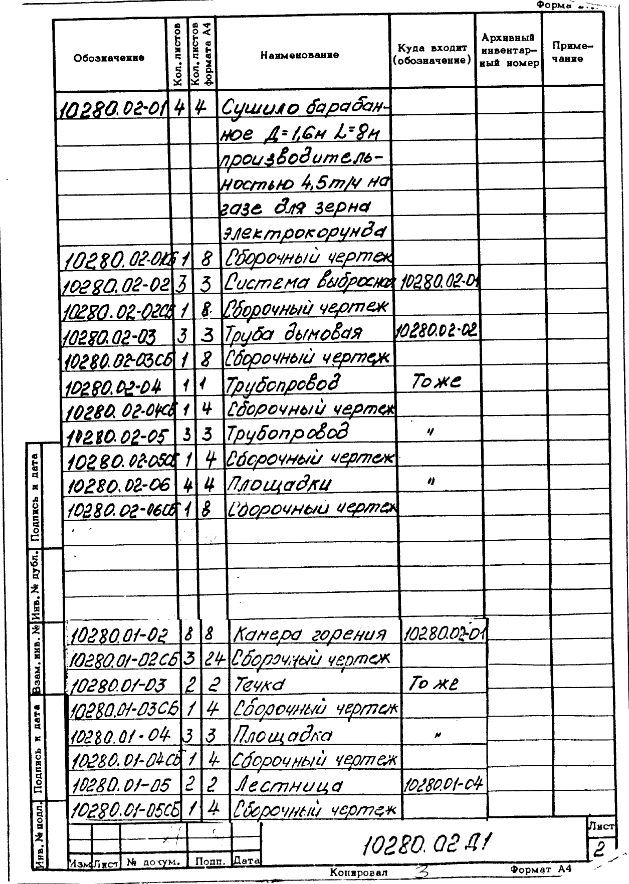 Форма
Обозначение Кол. листов Кол. листов формата А4 Наименование Куда входит (обозначение) Архивный инвентарный номер Примечание
10280.02-01 4 4 Сушило барабан-
ное Д=1,6м L=8м
производитель-
ностью 4,5т/ч на
газе для зерна
электрокорунда
10280.02-01СБ 1 8 Сборочный чертеж
10280.02-02 3 3 Система выбросна 10280.02-01
10280.02-02СБ 1 8 Сборочный чертеж
10280.02-03 3 3 Труба дымовая 10280.02-02
10280.02-03СБ 1 8 Сборочный чертеж
10280.02-04 1 1 Трубопровод То же
10280.02-04СБ 1 4 Сборочный чертеж
10280.02-05 3 3 Трубопровод "
10280.02-05СБ 1 4 Сборочный чертеж
10280.02-06 4 4 Площадки "
10280.02-06СБ 1 8 Сборочный чертеж
10280.01-02 8 8 Камера горения 10280.02-01
10280.01-02СБ 3 24 Сборочный чертеж
10280.01-03 2 2 Течка То же
10280.01-03СБ 1 4 Сборочный чертеж
10280.01-04 3 3 Площадка "
10280.01-04СБ 1 4 Сборочный чертеж
10280.01-05 2 2 Лестница 10280.01-04
10280.01-05СБ 1 4 Сборочный чертеж
Подпись и дата
Инв. № дубл.
Взам. инв. №
Подпись и дата
Инв. № подл.
Изм Лист № докум. Подп. Дата
10280.02 Д1
Лист
2
Копировал 3 Формат А4